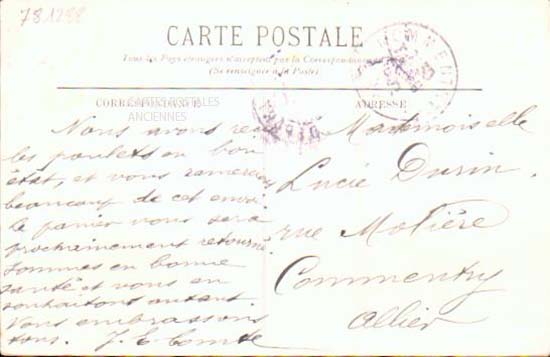 781288
CARTE POSTALE
Tous les Pays étrangers n'acceptent pas la Correspondance
(Se renseigner à la Poste)
CORRESPONDANCE
ADRESSE
CARTES POSTALES
ANCIENNES
Nous avons reçu
les poulets en bon
état, et vous remercions
beaucoup de cet envoi
le panier vous sera
prochainement retourné.
Sommes en bonne
santé et vous en
souhaitons autant.
Vous embrassons
tous. J. E. Comte
Mademoiselle
Lucie Durin
rue Molière
Commentry
Allier